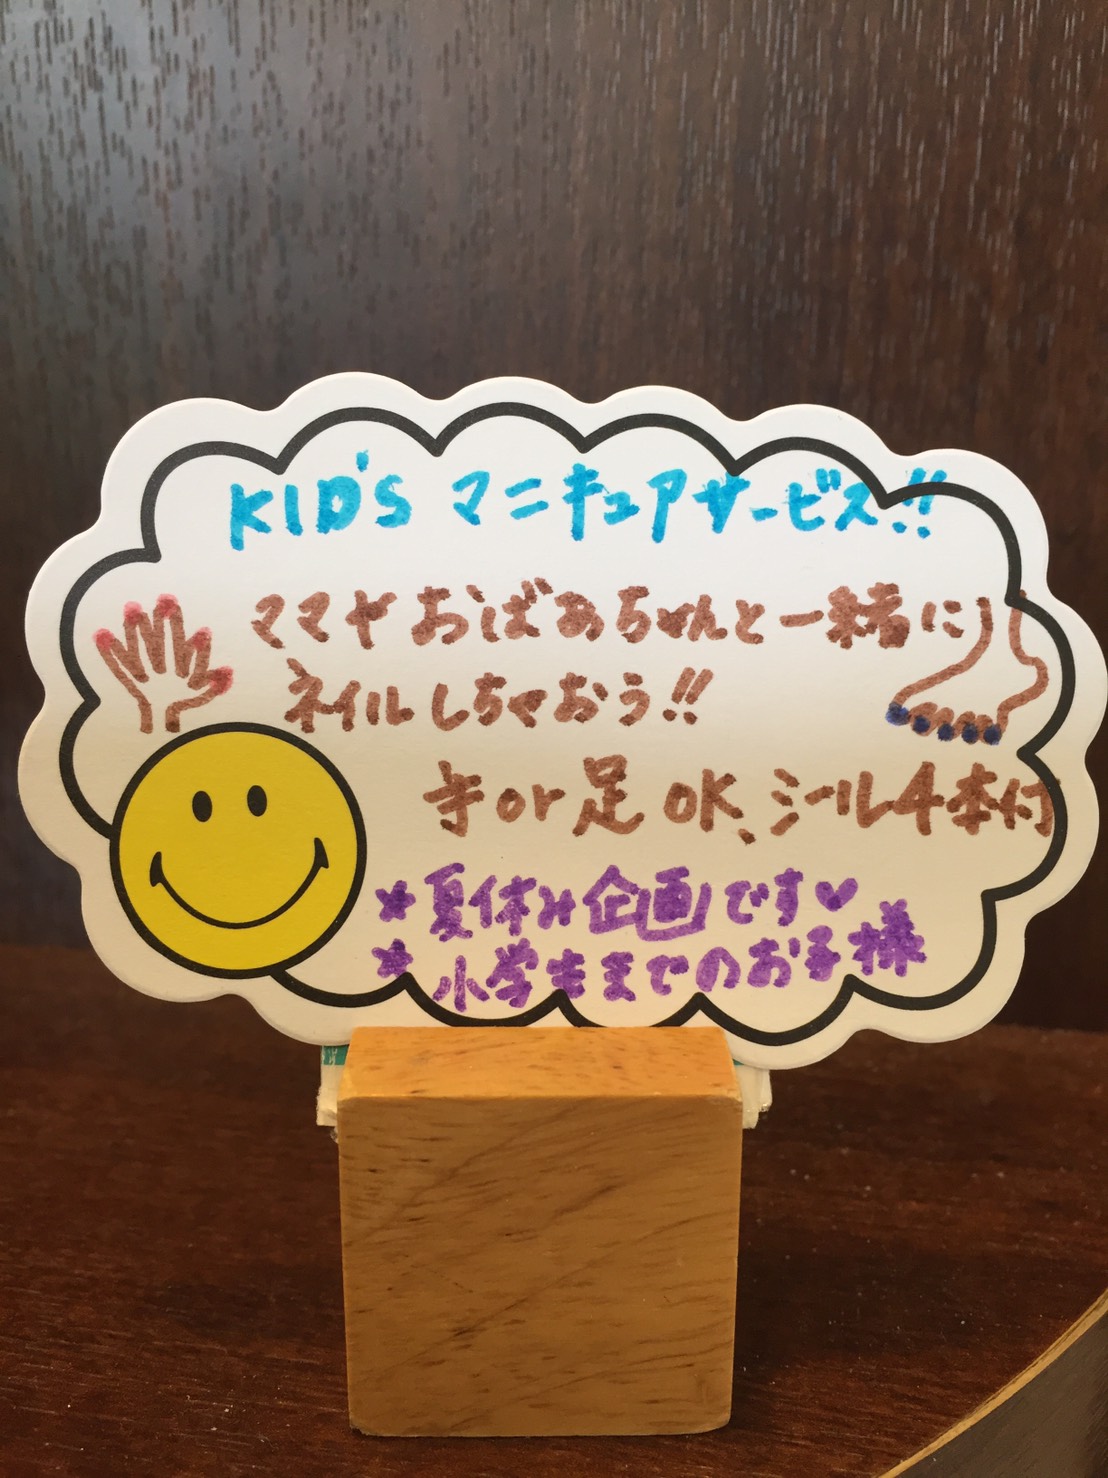 KID'S マニキュアサービス!!
ママやおばあちゃんと一緒に
ネイルしちゃおう!!
手or足OK、シール4本付
★夏休み企画です♥
★小学生までのお子様